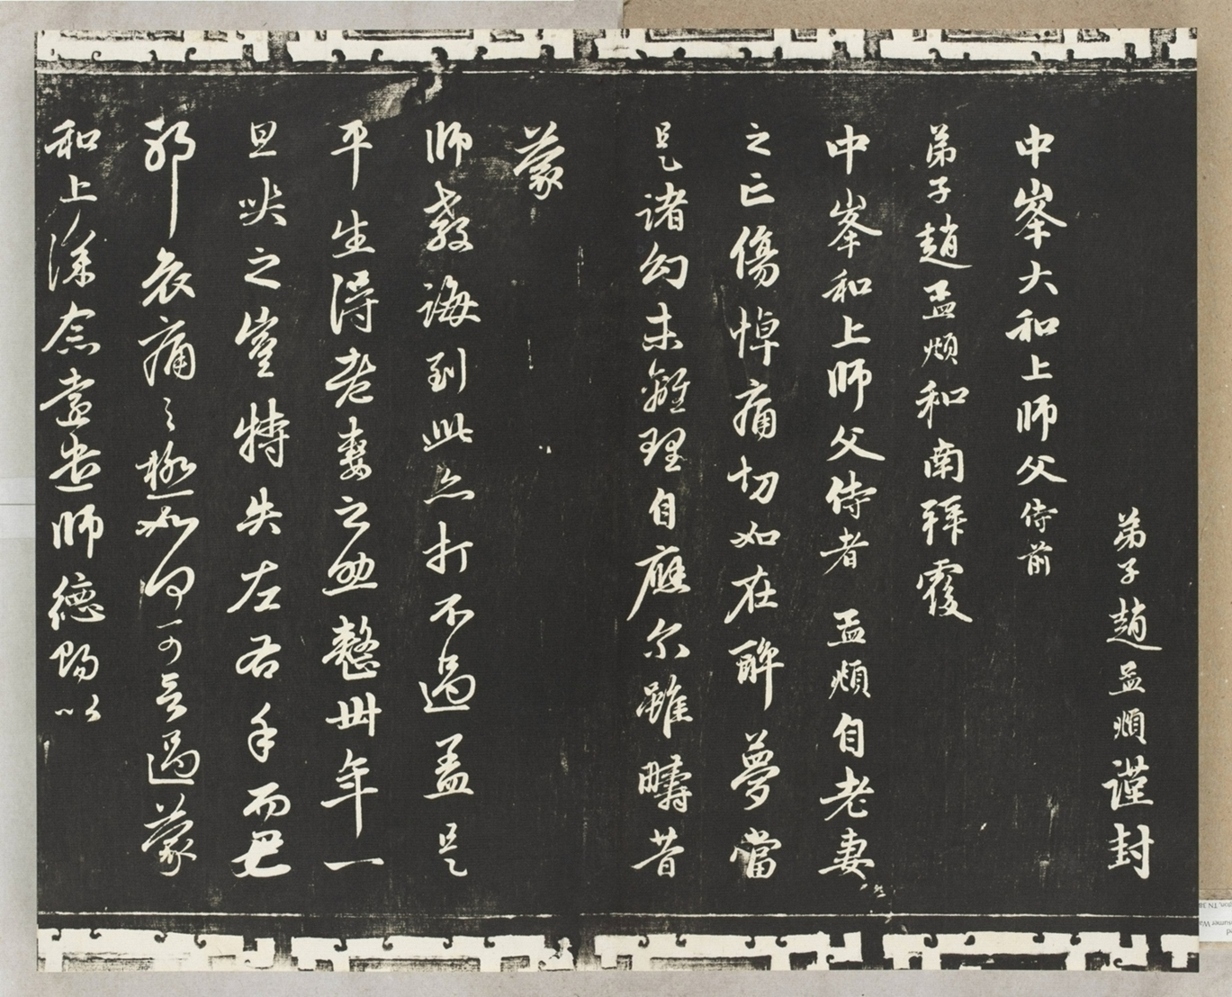 弟子趙孟頫謹封
中峯大和上師父侍前
弟子趙孟頫和南拜覆
中峯和上師父侍者孟頫自老妻
之亡傷悼痛切如在醉夢當
是諸幻未離理自應尓雖疇昔
蒙
師教誨到此亦打不過盖是
平生得老妻之助整卅年一
旦哭之豈特失左右手而已
耶哀痛之極如何可言過蒙
和上深念遠出師德賜以